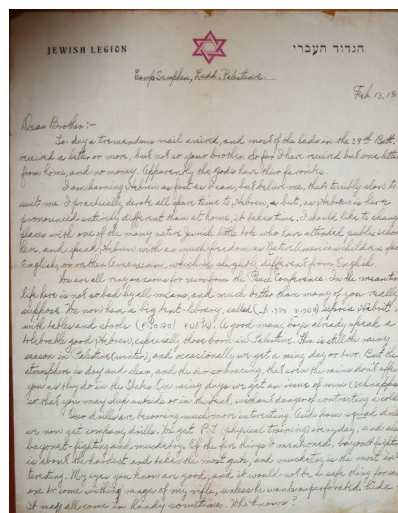 JEWISH LEGION הגדוד העברי
Camp Semplen, Ludd, Palestine.
Feb 13, 19
Dear Brother:-
To-day a tremendous mail arrived, and most of the lads in the 39th Batt.
received a letter or more, but not so your brother. So far I have received but one letter
from home, and no money. Apparently the gods have their favorites.
I am learning Hebrew as fast as I can, but believe me, that's terribly slow to
suit me. I practically devote all spare time to Hebrew, but, as Hebrew is here
pronounced entirely different than at home, it takes time. I should like to change
places with one of the many native Jewish little tots who have attended public school
here, and speak Hebrew with as much freedom as Native American children speak
English, or rather American, which is slightly different from English.
We are all vary anxious for news from the Peace Conference. In the meantime
life here is not so bad by all means, and much better than many of you really
suppose. We now have a big tent-library, called
with tables and stools A good many boys already speak a
tolerable good Hebrew, especially those born in Palestine. This is still the rainy
season in Palestine (winter), and occasionally we get a rainy day or two. But the
atmosphere is dry and clear, and the air so bracing, that even the rains don't affect
you as they do in the States. On rainy days we get an issue of rum
so that you may sleep outside or in the tent, without danger of contracting a cold.
Our drills are becoming much more interesting. Aside from squad drills
we now get company drills. We get P.T. (physical training) every day, and also
bayonet-fighting and musketry. Of the few things I mentioned, bayonet fighting
is about the hardest and takes the most guts, and musketry is the most in-
teresting. My eyes you know are good, and it would not be a safe thing for any
one to come within range of my rifle, unless he wants a perforated hide
It may all come in handy sometime. Who knows?